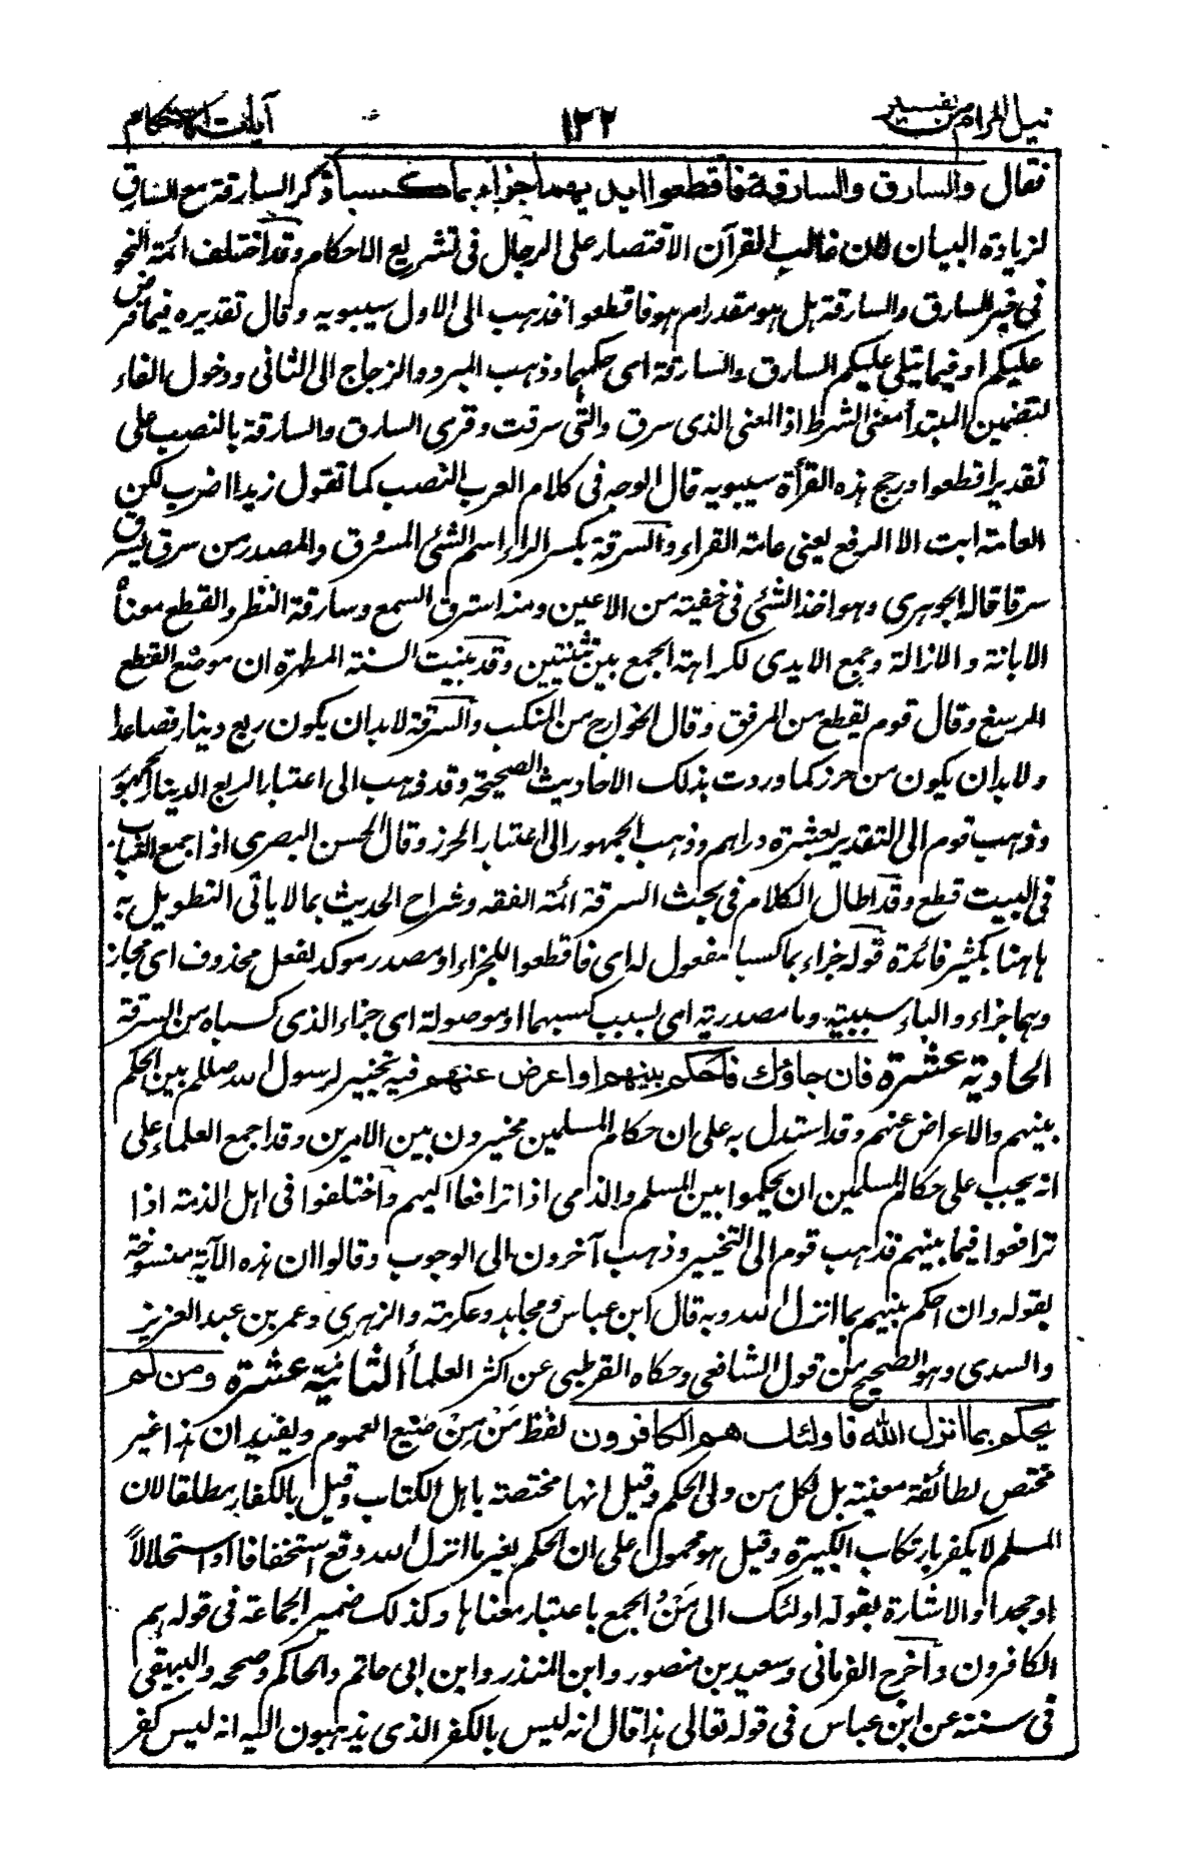 نيل المرام من تفسير ١٢٢ آيات الاحكام
فقال والسارق والسارقة فاقطعوا ايديهما جزاء بما كسبا ذكر السارقة مع السارق
لزيادة البيان لان غالب القرآن الاقتصار على الرجال فى تشريع الاحكام وقد اختلف ائمة النحو
فى خبر السارق والسارقة هل هو مقدر ام هو فاقطعوا فذهب الى الاول سيبويه وقال تقديره فيما فرض
عليكم او فيما يتلى عليكم السارق والسارقة اى حكمهما وذهب المبرد والزجاج الى الثانى ودخول الفاء
لتضمين المبتدأ معنى الشرط اذ المعنى الذى سرق والتى سرقت وقرى السارق والسارقة بالنصب على
تقدير اقطعوا ورجح هذه القرأة سيبويه قال الوجه فى كلام العرب النصب كما تقول زيدا اضرب لكن
العامة ابت الا الرفع يعنى عامة القراء والسرقة بكسر الراء اسم الشئ المسروق والمصدر من سرق يسرق
سرقا قاله الجوهرى وهو اخذ الشئ فى خفية من الاعين ومنه استرق السمع وسارقة النظر والقطع معناه
الابانة والازالة وجمع الايدى لكراهة الجمع بين تثنيتين وقد بينت السنة المطهرة ان موضع القطع
الرسغ وقال قوم يقطع من المرفق وقال الخوارج من المنكب والسرقة لابد ان يكون ربع دينار فصاعدا
ولابد ان يكون من حرز كما وردت بذلك الاحاديث الصحيحة وقد ذهب الى اعتبار الربع الدينار الجمهور
وذهب قوم الى التقدير بعشرة دراهم وذهب الجمهور الى اعتبار الحرز وقال الحسن البصرى اذا جمع الثياب
فى البيت قطع وقد اطال الكلام فى بحث السرقة ائمة الفقه وشراح الحديث بما لا ياتى التطويل به
هاهنا بكثير فائدة قوله جزاء بما كسبا مفعول له اى فاقطعوا للجزاء او مصدر موكد لفعل محذوف اى فجازو
وهما جزاء والباء سببية وما مصدرية اى بسبب كسبهما او موصولة اى جزاء الذى كسباه من السرقة
الحادية عشرة فان جاؤك فاحكم بينهم او اعرض عنهم فيه تخيير لرسول الله صللم بين الحكم
بينهم والاعراض عنهم وقد استدل به على ان حكام المسلمين مخيرون بين الامرين وقد اجمع العلماء على
انه يجب على حكام المسلمين ان يحكموا بين المسلم والذمى اذا ترافعا اليهم واختلفوا فى اهل الذمة اذا
ترافعوا فيما بينهم فذهب قوم الى التخيير وذهب آخرون الى الوجوب وقالوا ان هذه الآية منسوخة
بقوله وان احكم بينهم بما انزل الله وبه قال ابن عباس ومجاهد وعكرمة والزهرى وعمر بن عبد العزيز
والسدى وهو الصحيح من قول الشافعى وحكاه القرطبى عن اكثر العلمأ الثانية عشرة ومن لم
يحكم بما انزل الله فاولئك هم الكافرون لفظ مَنْ مِنْ صيغ العموم ويفيد ان هذا غير
مختص بطائفة معينة بل لكل من ولى الحكم وقيل انها مختصة باهل الكتاب وقيل بالكفار مطلقا لان
المسلم لا يكفر بارتكاب الكبيرة وقيل هو محمول على ان الحكم بغير ما انزل الله وقع استخفافا او استحلالاً
او جحدا والاشارة بقوله اولئك الى مَنْ والجمع باعتبار معناها وكذلك ضمير الجماعة فى قوله هم
الكافرون وأخرج الفريابى وسعيد بن منصور وابن المنذر وابن ابى حاتم والحاكم وصححه والبيهقى
فى سننه عن ابن عباس فى قوله تعالى هذا قال انه ليس بالكفر الذى يذهبون اليه انه ليس كفر